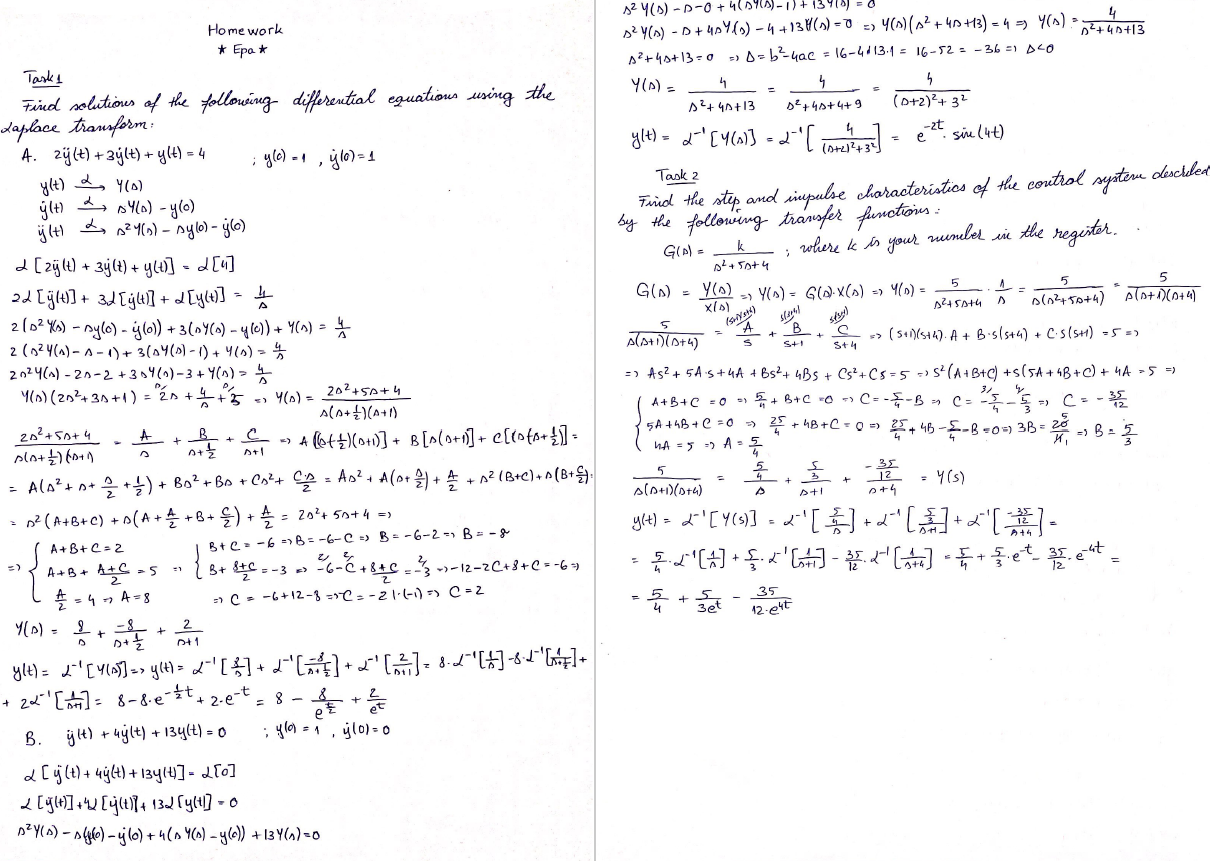 Homework
★ Epa ★
Task 1
Find solutions of the following differential equations using the
Laplace transform:
A. 2ÿ(t) + 3ẏ(t) + y(t) = 4 ; y(0) = 1 , ẏ(0) = 1
y(t) —ℒ→ Y(s)
ẏ(t) —ℒ→ sY(s) - y(0)
ÿ(t) —ℒ→ s²Y(s) - sy(0) - ẏ(0)
ℒ[2ÿ(t) + 3ẏ(t) + y(t)] = ℒ[4]
2ℒ[ÿ(t)] + 3ℒ[ẏ(t)] + ℒ[y(t)] = 4/s
2(s²Y(s) - sy(0) - ẏ(0)) + 3(sY(s) - y(0)) + Y(s) = 4/s
2(s²Y(s) - s - 1) + 3(sY(s) - 1) + Y(s) = 4/s
2s²Y(s) - 2s - 2 + 3sY(s) - 3 + Y(s) = 4/s
Y(s)(2s² + 3s + 1) = 2s + 4/s + 5 => Y(s) = (2s² + 5s + 4)/(s(s+1/2)(s+1))
(2s² + 5s + 4)/(s(s+1/2)(s+1)) = A/s + B/(s+1/2) + C/(s+1) => A[(s+1/2)(s+1)] + B[s(s+1)] + C[(s(s+1/2)] =
= A(s² + s + s/2 + 1/2) + Bs² + Bs + Cs² + Cs/2 = As² + A(s + s/2) + A/2 + s²(B+C) + s(B+C/2) =
= s²(A+B+C) + s(A + A/2 + B + C/2) + A/2 = 2s² + 5s + 4 =>
=> { A+B+C = 2 => { B+C = -6 => B = -6-C => B = -6-2 => B = -8
A+B+ (A+C)/2 = 5 B + (8+C)/2 = -3 => -6-C + (8+C)/2 = -3 => -12-2C+8+C = -6 =>
A/2 = 4 => A = 8 => C = -6+12-8 => -C = -2 |·(-1) => C = 2
Y(s) = 8/s + -8/(s+1/2) + 2/(s+1)
y(t) = ℒ⁻¹[Y(s)] => y(t) = ℒ⁻¹[8/s] + ℒ⁻¹[-8/(s+1/2)] + ℒ⁻¹[2/(s+1)] = 8·ℒ⁻¹[1/s] - 8·ℒ⁻¹[1/(s+1/2)] +
+ 2ℒ⁻¹[1/(s+1)] = 8 - 8·e^(-1/2 t) + 2·e^(-t) = 8 - 8/e^(t/2) + 2/e^t
B. ÿ(t) + 4ẏ(t) + 13y(t) = 0 ; y(0) = 1 , ẏ(0) = 0
ℒ[ÿ(t) + 4ẏ(t) + 13y(t)] = ℒ[0]
ℒ[ÿ(t)] + 4ℒ[ẏ(t)] + 13ℒ[y(t)] = 0
s²Y(s) - s(y(0) - ẏ(0) + 4(sY(s) - y(0)) + 13Y(s) = 0
s²Y(s) - s - 0 + 4(sY(s) - 1) + 13Y(s) = 0
s²Y(s) - s + 4sY(s) - 4 + 13Y(s) = 0 => Y(s)(s² + 4s + 13) = 4 => Y(s) = 4/(s² + 4s + 13)
s² + 4s + 13 = 0 => Δ = b² - 4ac = 16 - 4·13·1 = 16 - 52 = -36 => Δ < 0
Y(s) = 4/(s² + 4s + 13) = 4/(s² + 4s + 4 + 9) = 4/((s+2)² + 3²)
y(t) = ℒ⁻¹[Y(s)] = ℒ⁻¹[4/((s+2)² + 3²)] = e^(-2t) · sin(4t)
Task 2
Find the step and impulse characteristics of the control system described
by the following transfer functions:
G(s) = k/(s² + 5s + 4) ; where k is your number in the register.
G(s) = Y(s)/X(s) => Y(s) = G(s)·X(s) => Y(s) = 5/(s² + 5s + 4) · 1/s = 5/(s(s² + 5s + 4)) = 5/(s(s+1)(s+4))
5/(s(s+1)(s+4)) = A/s + B/(s+1) + C/(s+4) => (s+1)(s+4)·A + B·s(s+4) + C·s(s+1) = 5 =>
=> As² + 5A·s + 4A + Bs² + 4Bs + Cs² + Cs = 5 => s²(A+B+C) + s(5A+4B+C) + 4A = 5 =>
{ A+B+C = 0 => 5/4 + B + C = 0 => C = -5/4 - B => C = -5/4 - 5/3 => C = -35/12
5A+4B+C = 0 => 25/4 + 4B + C = 0 => 25/4 + 4B - 5/4 - B = 0 => 3B = 20/4 => B = 5/3
4A = 5 => A = 5/4
5/(s(s+1)(s+4)) = (5/4)/s + (5/3)/(s+1) + (-35/12)/(s+4) = Y(s)
y(t) = ℒ⁻¹[Y(s)] = ℒ⁻¹[(5/4)/s] + ℒ⁻¹[(5/3)/(s+1)] + ℒ⁻¹[(-35/12)/(s+4)] =
= 5/4·ℒ⁻¹[1/s] + 5/3·ℒ⁻¹[1/(s+1)] - 35/12·ℒ⁻¹[1/(s+4)] = 5/4 + 5/3·e^(-t) - 35/12·e^(-4t) =
= 5/4 + 5/(3e^t) - 35/(12·e^(4t))